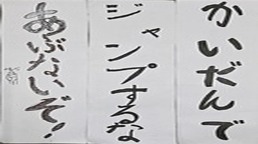 かいだんで
ジャンプするな
あぶないぞ!!